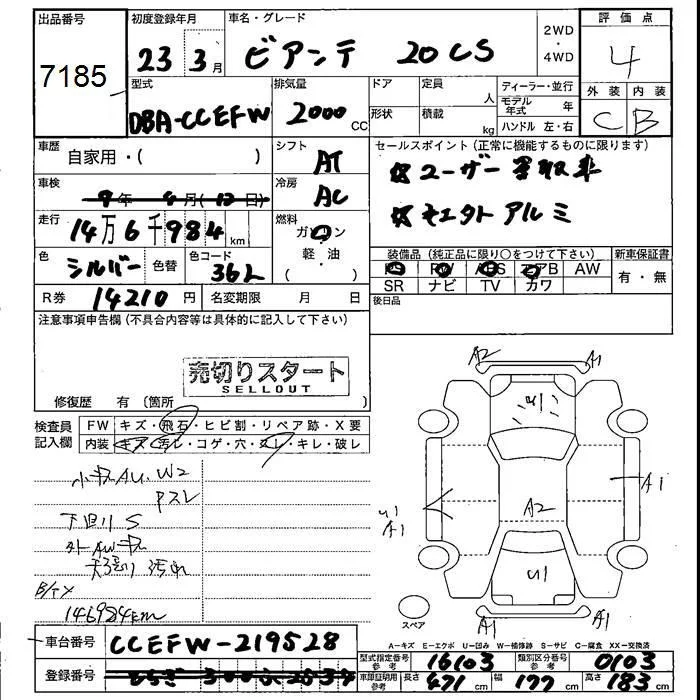 出品番号 初度登録年月 車名・グレード 2WD・4WD 評価点
7185 23年3月 ビアンテ 20CS 4
型式 排気量 ドア 定員 人 ディーラー・並行 外装 内装
DBA-CCEFW 2000CC 形状 積載 kg モデル年式 年 ハンドル 左・右 C B
車歴 自家用・( ) シフト AT セールスポイント(正常に機能するものに限ります)
車検 冷房 AC ☆ユーザー買取車
走行 14万6千984km 燃料 ガソリン ☆モエタト アルミ
軽・油 ( )
色 シルバー 色替 色コード 36L 装備品(純正品に限り○をつけて下さい) 新車保証書
PS PW ABS エアB AW 有・無
SR ナビ TV カワ
R券 14210円 名変期限 月 日 後日品
注意事項申告欄(不具合内容等は具体的に記入して下さい)
売切りスタート
SELLOUT
修復歴 有(箇所
検査員記入欄 FW キズ・飛石・ヒビ割・リペア跡・X要
内装 キズ・汚レ・コゲ・穴・スレ・キレ・破レ
A2 A1
U1
小キズAU、W2
Pスレ
A1
U1 A1
A2
下回りS
外AWキズ
天張り汚れ
U1
B/タメ
146984km
スペア
A1 A1
車台番号 CCEFW-219528
A-キズ E-エクボ U-凹み W-補修跡 S-サビ C-腐食 XX-交換済
型式指定番号 参考 16103 類別区分番号 参考 0103
登録番号
車庫証明用 参考 長さ 471cm 幅 177cm 高さ 183cm